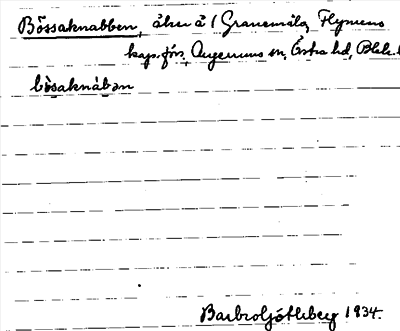 Bössaknabben, åker å 1 Granemåla, Flymens
kap.förs., Augerums sn, Östra hd, Blek.l
bòsaknàban
Barbro Götleberg 1934.